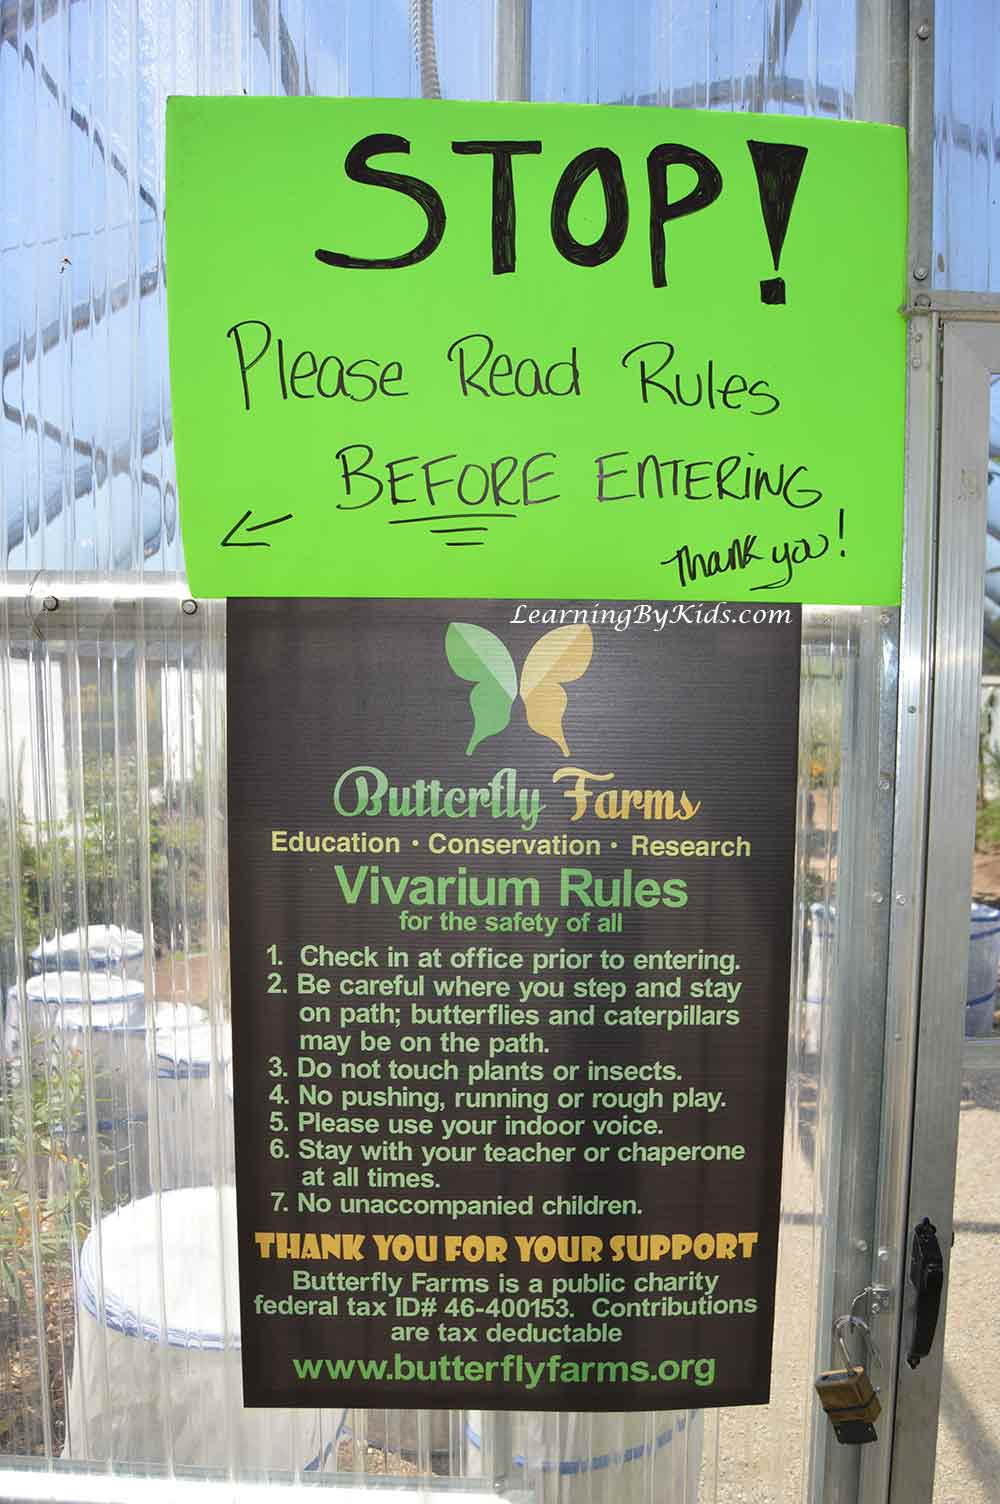 STOP!
Please Read Rules
BEFORE ENTERING
Thank you!
LearningByKids.com
Butterfly Farms
Education · Conservation · Research
Vivarium Rules
for the safety of all
1. Check in at office prior to entering.
2. Be careful where you step and stay
on path; butterflies and caterpillars
may be on the path.
3. Do not touch plants or insects.
4. No pushing, running or rough play.
5. Please use your indoor voice.
6. Stay with your teacher or chaperone
at all times.
7. No unaccompanied children.
THANK YOU FOR YOUR SUPPORT
Butterfly Farms is a public charity
federal tax ID# 46-400153. Contributions
are tax deductable
www.butterflyfarms.org